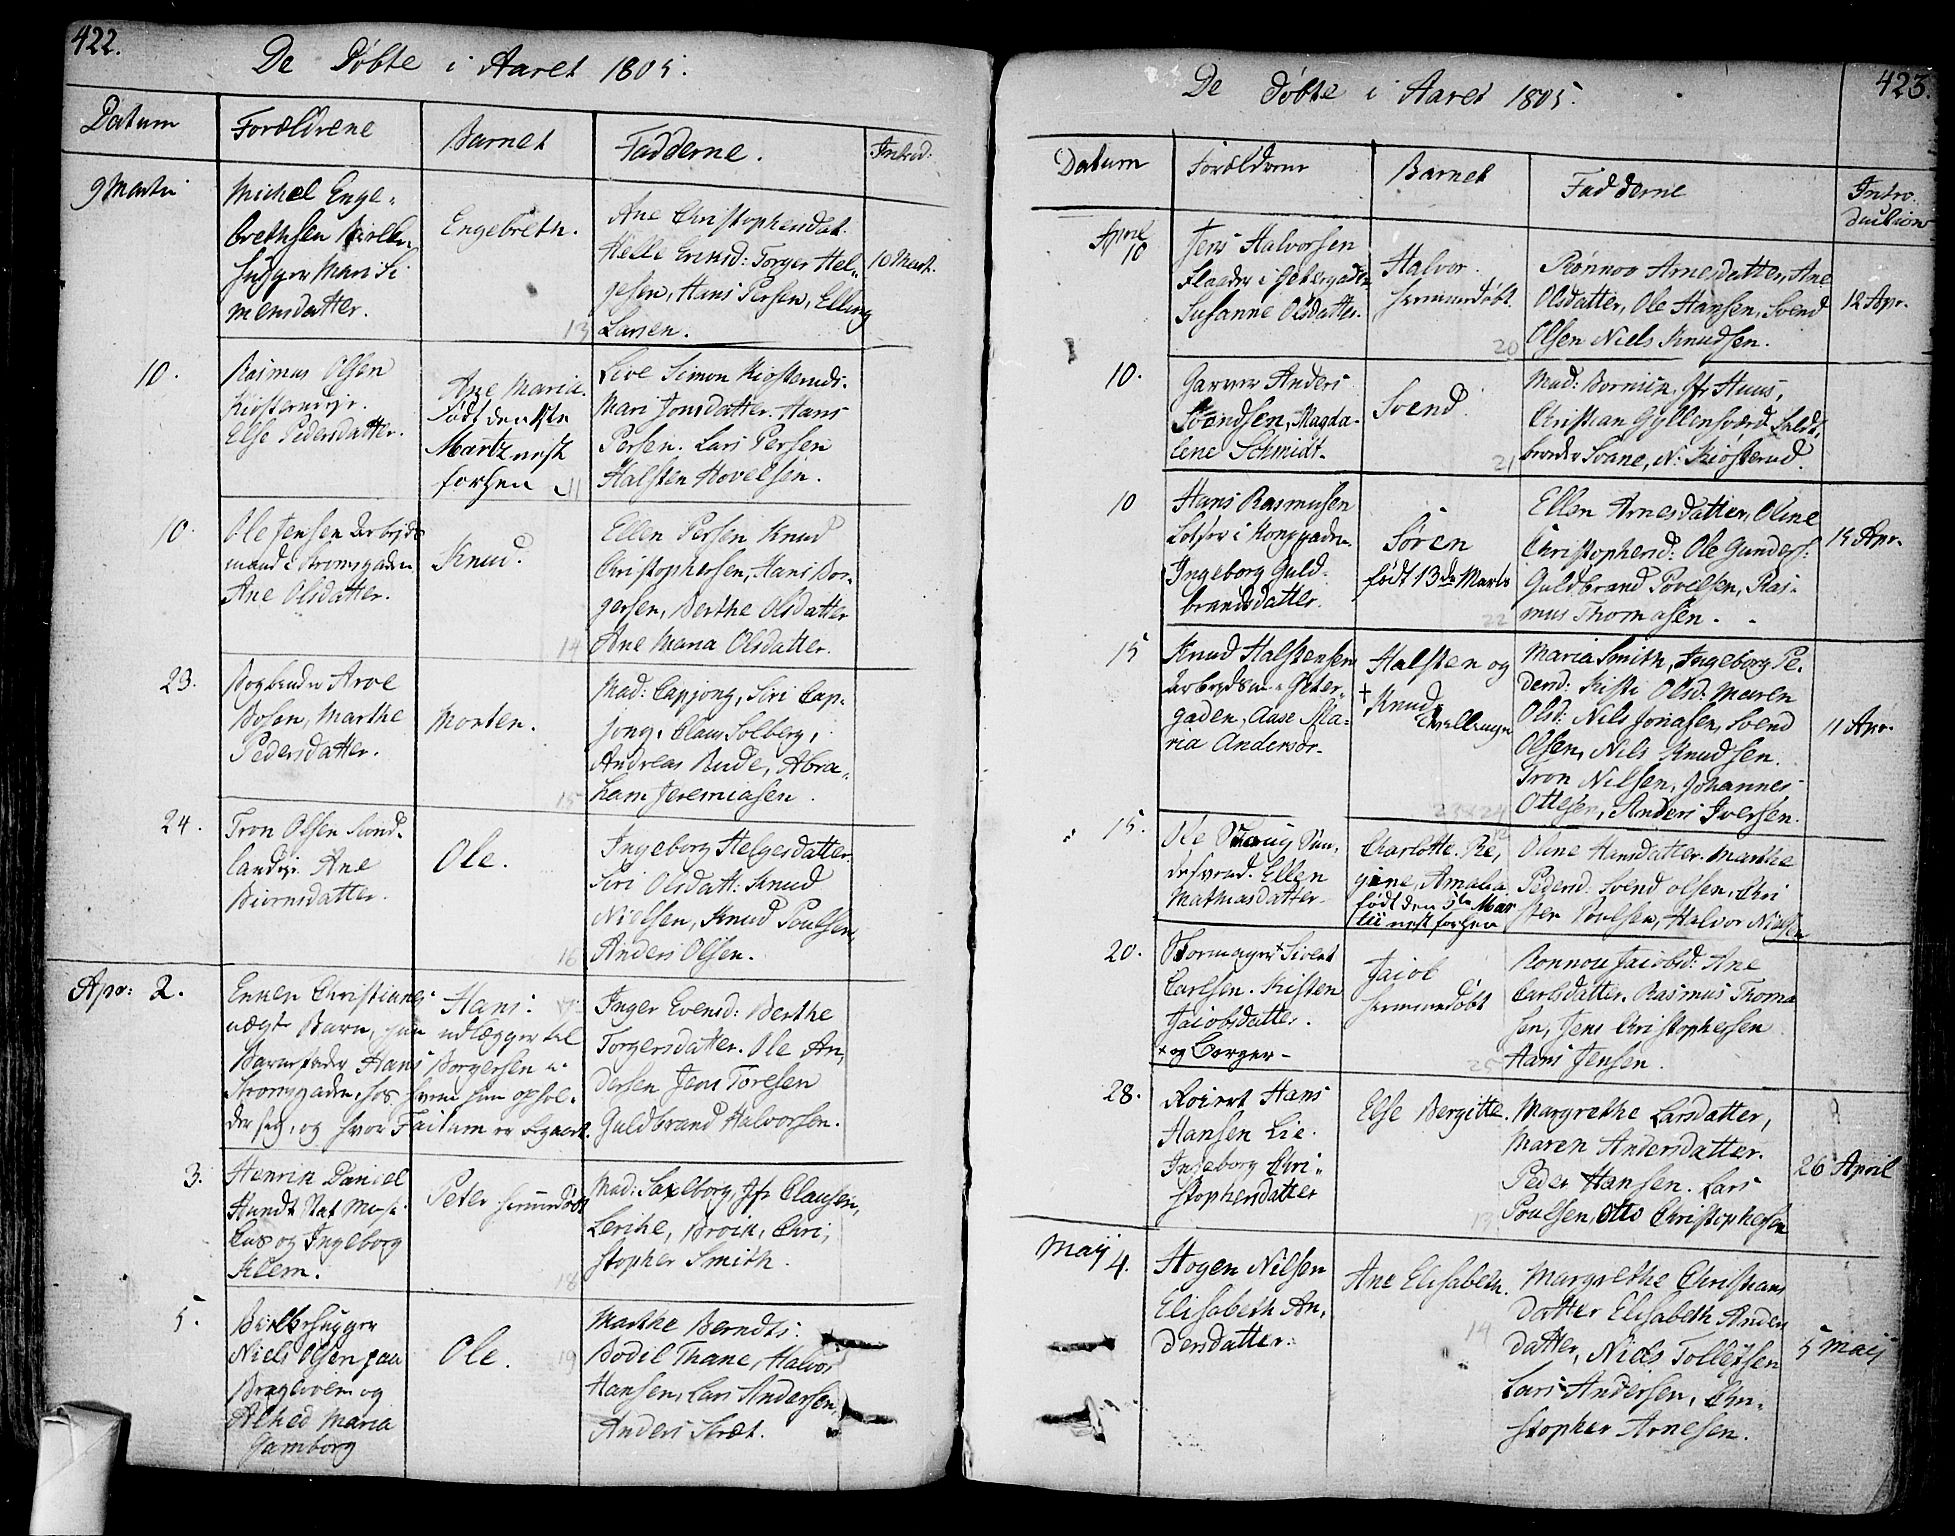 422.
De Døbte i Aaret 1805.
Datum
Forældrene
Barnet
Fadderne.
Introd:
9 Martii
Michel Enge-
brethsen
hugger Mari Si
mensdatter.
Engebreth.
Ane Christophersdat.
Helle Ericsd: Torger Hel-
gesen, Hans Persen, Elling
Larsen.
10 Mart.
13
10.
Rasmus Olsen
Kiøsterudejr.
Else Pedersdatter.
Ane Maria.
Født den
Martz nest
forhen
11
Live Simon Kiøsteruds.
Mari Jonsdatter. Hans
Persen. Lars Persen
Halsten Hovelsen.
10.
Ole Jensen Arbejds
mand i Strømsgaden
Ane Olsdatter.
Knud.
Ellen Persen Knud
Christophersen, Hans Bor-
gersen, Berthe Olsdatter
Ane Maria Olsdatter.
14
23.
Bogbinder Arve
Bosen, Marthe
Pedersdatter.
Morten.
Mad: Capjong, Siri Cap-
jong, Claus Solberg,
Andreas Rude, Abra-
ham Jeremiasen.
15
24.
Tron Olsen Sund-
landejr. Ane
Biørnsdatter.
Ole.
Ingeborg Helgesdatter
Siri Olsdatt: Knud
Nielsen, Knud Poulsen,
Anders Olsen.
16
Apr: 2.
Enken Christianes
uægt Barn, hun udlægger til
Barnefader Hans Borgersen i
Strømsgaden, hos hvem hun ophol-
der sig, og hvor Factum er
Hans.
Inger Evensd: Berthe
Torgersdatter. Ole An-
dersen Jens Toresen
Guldbrand Halvorsen.
3.
Henrik Daniel
Hundt Stat Musi-
cus og Ingeborg
Klem.
Peter hiemmedøbt
Mad: Saxeborg, Jfr Clausen,
Lerche, Broch, Chri-
stopher Smith.
18
5.
Bielkehugger
Niels Olsen paa
Bragernæs og
Alhed Maria
Gamborg
Ole.
19
Marthe Berndts.
Bodil Thane, Halvor
Hansen, Lars Andersen,
Anders Stræt.
423.
De Døbte i Aaret 1805.
Datum
Forældrene
Barnet
Fadderne
Intro
ductions
April
10
Jens Halvorsen
Flaader i Petersgaden
Susanne Olsdatter.
Halvor
hiemmedøbt.
20
Rønnov Arnesdatter, Ane
Olsdatter, Ole Hansen, Svend
Olsen Niels Knudsen.
12 Apr.
10.
Garver Anders
Svendsen, Magda-
lene Schmidt.
Svend.
21
Mad: Jfr Huus,
Christian Gyllensværd
Svane, N: Kiøsterud.
10
Hans Rasmusen
Lodser i Kongsgaden.
Ingeborg Guld-
brandsdatter.
Søren
født 13de Marts
22
Ellen Arnesdatter, Oline
Christophersd: Ole Gunders:
Guldbrand Povelsen, Ras-
mus Thomasen.
15 Apr.
15
Knud Halstensen
Arbejdsm i Peter-
gaden, Aase Ma-
ria Andersdr.
Halsten og
+ Knud
Tvillinger
23 & 24
Maria Smith, Ingeborg Pe-
dersd: Kisti Olsd: Maren
Olsd: Nils Jonasen, Svend
Olsen, Nils Knudsen.
Tron Nilsen, Johannes
Ottesen, Anders Iversen.
11 Apr.
15.
Ole
Ellen
Mathiasdatter
Charlotte Re-
gine, Amalia
født den 5te Mar
tii nest forhen
12
Oline Hansdatter. Marthe
Pedersd: Svend Olsen, Chri
sten Poulsen, Halvor Nielsen
20.
Formager+ Sivert
Carlsen. Kisten
Jacobsdatter.
+ og Borger
Jacob
hiemmedøbt
25
Ronnou Jacobsd: Ane
Carlsdatter. Rasmus Thoma
sen, Jens Christophersen
Hans Jensen.
28.
Hans
Hansen Lie.
Ingeborg Chri-
stophersdatter
Else Bergitte.
13
Margrethe Larsdatter,
Maren Andersdatter.
Peder Hansen. Lars
Poulsen, Otto Christophersen
26 April
Maij
4.
Hogen Nilsen
Elisabeth An-
dersdatter.
Ane Elisabeth.
14
Margrethe Christians
datter Elisabeth Anders
datter, Niels Tollefsen
Lars Andersen, Chri-
stopher Arnesen.
5 Maij